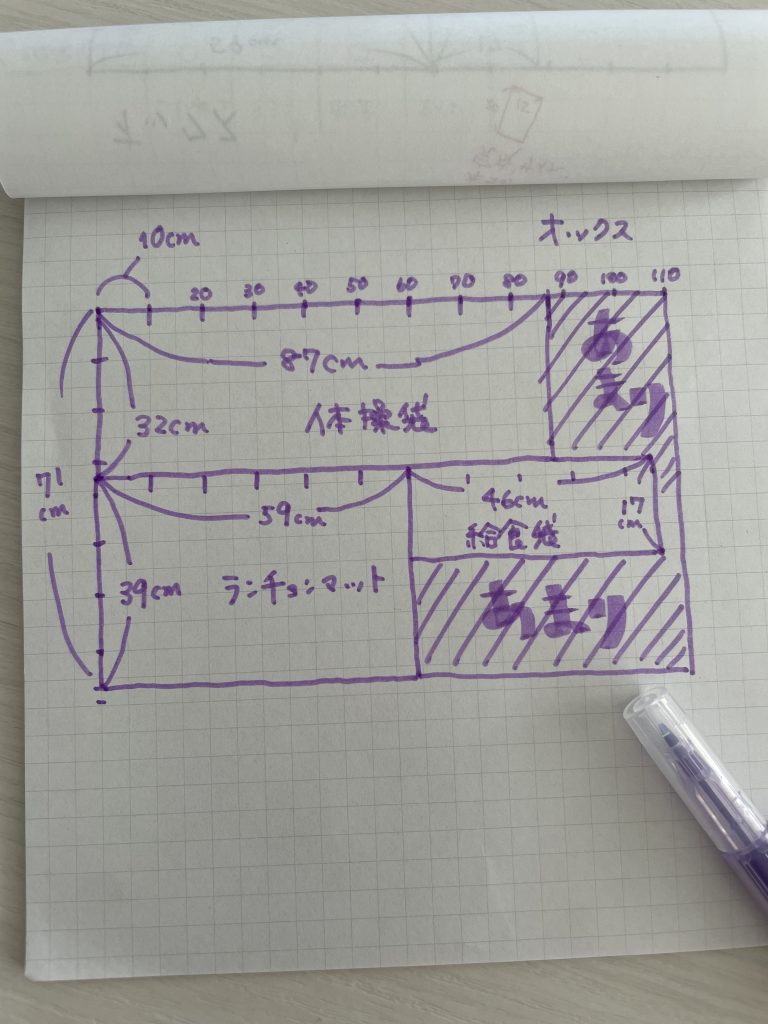 オックス
10cm
20 30 40 50 60 70 80 90 100 110
87cm
あまり
32cm
体操袋
71
cm
59cm
46cm
17
cm
給食袋
39cm
ランチョンマット
あまり